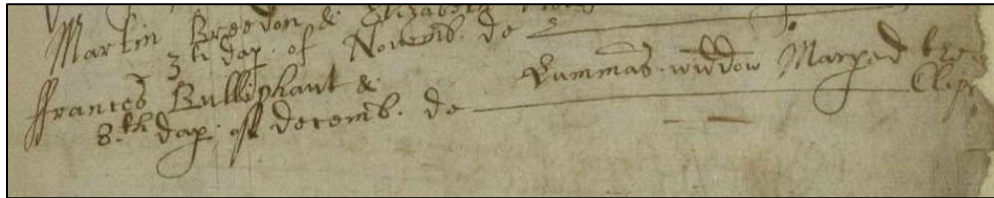 Martin Breedon & Elizabeth
3th day of Novemb. do
ffrances Bulliphant & Rummas widdow Maryed
8.th day of decemb. do